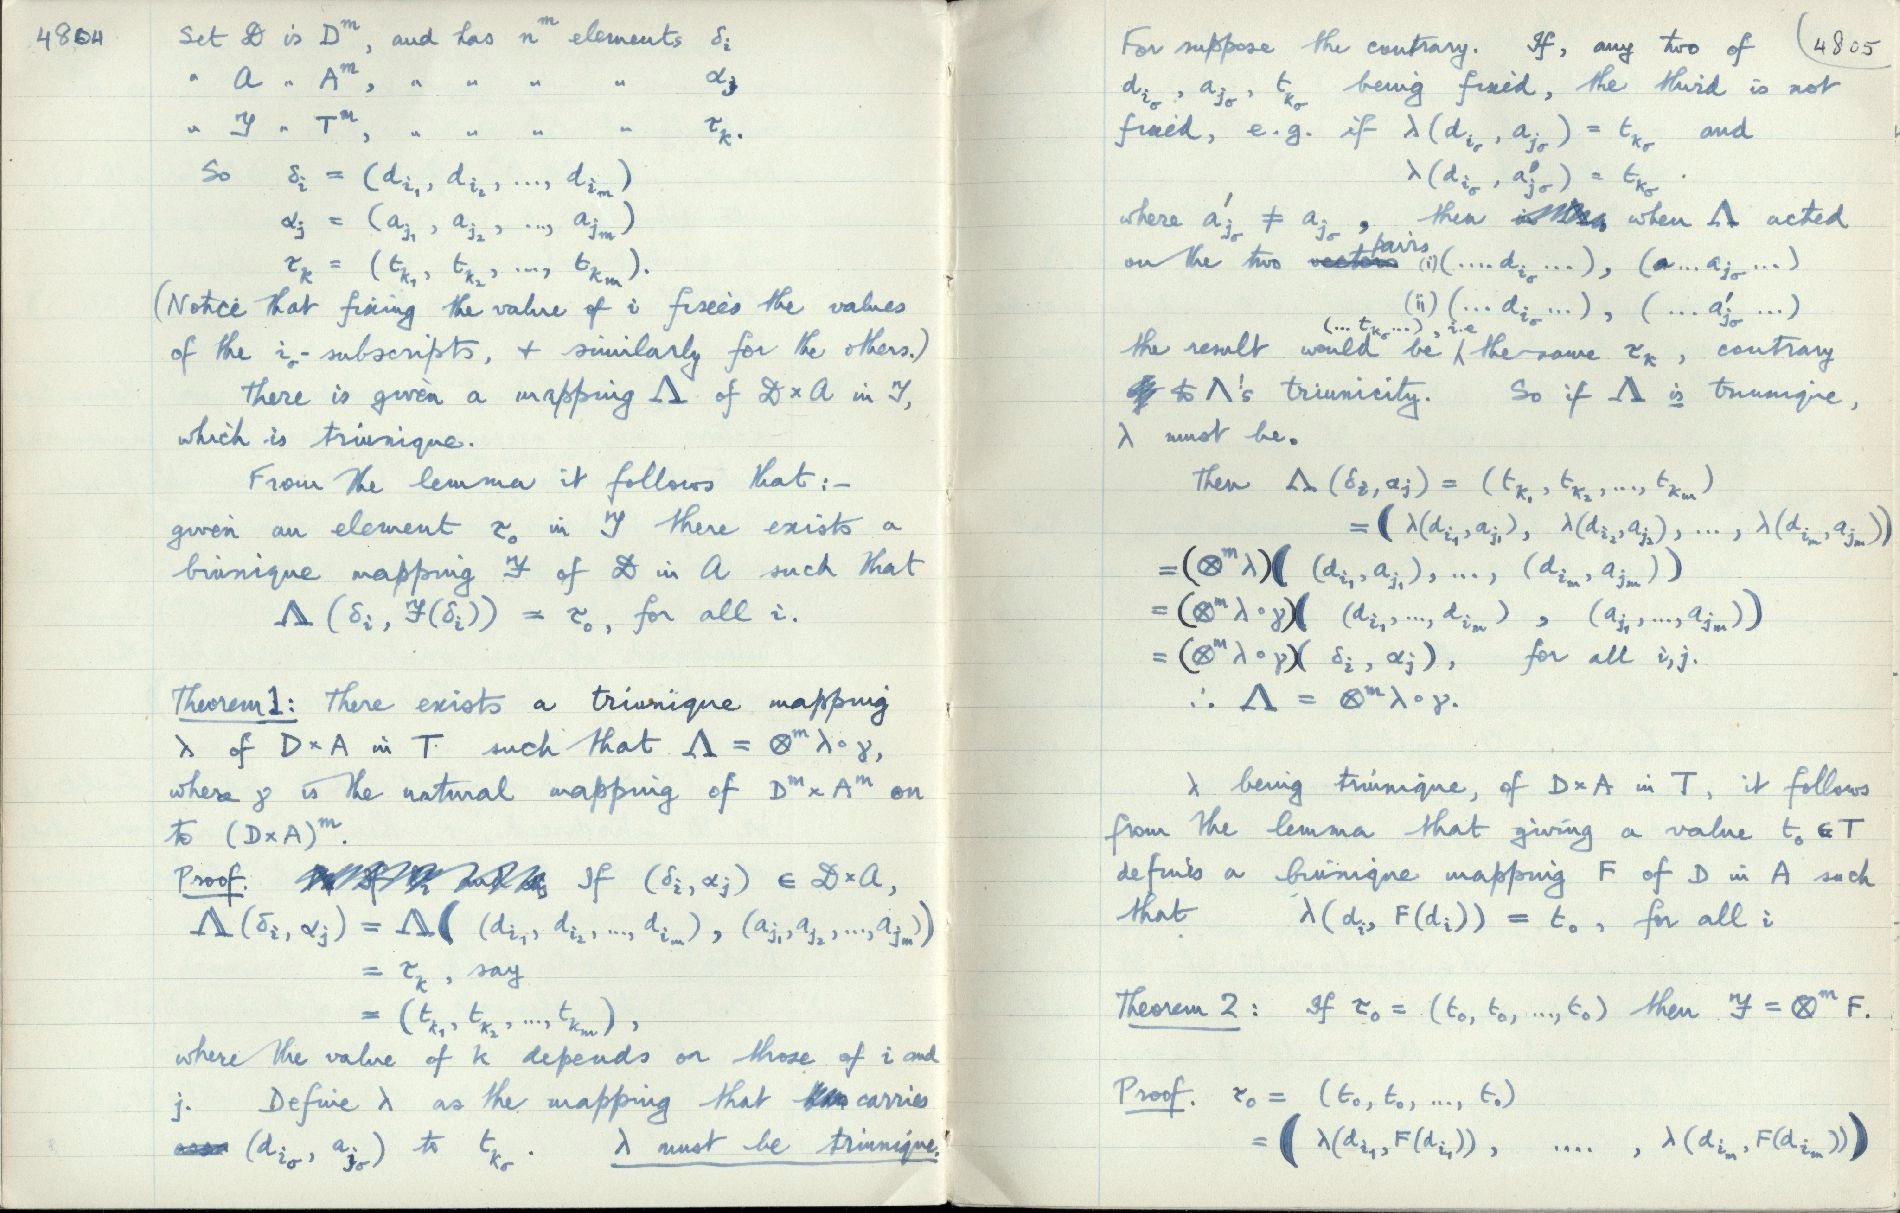 4804
Set 𝒟 is Dᵐ, and has nᵐ elements δᵢ
" 𝒜 " Aᵐ, " " " " αⱼ
" 𝒯 " Tᵐ, " " " " τₖ.
So δᵢ = (d_{i₁}, d_{i₂}, ..., d_{iₘ})
αⱼ = (a_{j₁}, a_{j₂}, ..., a_{jₘ})
τₖ = (t_{k₁}, t_{k₂}, ..., t_{kₘ}).
(Notice that fixing the value of i fixes the values
of the i_σ-subscripts, + similarly for the others.)
There is given a mapping Λ of 𝒟×𝒜 in 𝒯,
which is triunique.
From the lemma it follows that:–
given an element τ₀ in 𝒯 there exists a
biunique mapping ℱ of 𝒟 in 𝒜 such that
Λ(δᵢ, ℱ(δᵢ)) = τ₀, for all i.
Theorem 1: There exists a triunique mapping
λ of D×A in T such that Λ = ⊗ᵐλ∘γ,
where γ is the natural mapping of Dᵐ×Aᵐ on
to (D×A)ᵐ.
Proof. If (δᵢ, αⱼ) ∈ 𝒟×𝒜,
Λ(δᵢ, αⱼ) = Λ( (d_{i₁}, d_{i₂}, ..., d_{iₘ}), (a_{j₁}, a_{j₂}, ..., a_{jₘ}))
= τₖ, say
= (t_{k₁}, t_{k₂}, ..., t_{kₘ}),
where the value of k depends on those of i and
j. Define λ as the mapping that carries
(d_{i_σ}, a_{j_σ}) to t_{k_σ}. λ must be triunique.
4805
For suppose the contrary. If, any two of
d_{i_σ}, a_{j_σ}, t_{k_σ} being fixed, the third is not
fixed, e.g. if λ(d_{i_σ}, a_{j_σ}) = t_{k_σ} and
λ(d_{i_σ}, a'_{j_σ}) = t_{k_σ}.
where a'_{j_σ} ≠ a_{j_σ}, then when Λ acted
on the two vectors pairs (i) (....d_{i_σ}...), (a...a_{j_σ}...)
(ii) (...d_{i_σ}...), (...a'_{j_σ}...)
the result would be (...t_{k_σ}...), i.e the same τₖ, contrary
to Λ's triunicity. So if Λ is triunique,
λ must be.
Then Λ(δᵢ, αⱼ) = (t_{k₁}, t_{k₂}, ..., t_{kₘ})
= ( λ(d_{i₁}, a_{j₁}), λ(d_{i₂}, a_{j₂}), ..., λ(d_{iₘ}, a_{jₘ}))
= (⊗ᵐλ)( (d_{i₁}, a_{j₁}), ..., (d_{iₘ}, a_{jₘ}))
= (⊗ᵐλ∘γ)( (d_{i₁}, ..., d_{iₘ}), (a_{j₁}, ..., a_{jₘ}))
= (⊗ᵐλ∘γ)( δᵢ, αⱼ), for all i,j.
∴ Λ = ⊗ᵐλ∘γ.
λ being triunique, of D×A in T, it follows
from the lemma that giving a value t₀ ∈ T
defines a biunique mapping F of D in A such
that λ(dᵢ, F(dᵢ)) = t₀, for all i
Theorem 2: If τ₀ = (t₀, t₀, ..., t₀) then ℱ = ⊗ᵐ F.
Proof. τ₀ = (t₀, t₀, ..., t₀)
= ( λ(d_{i₁}, F(d_{i₁})), ...., λ(d_{iₘ}, F(d_{iₘ})))